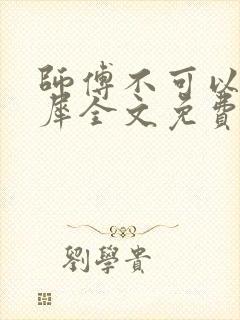 師傅不可以
犀全文免費
劉學貴